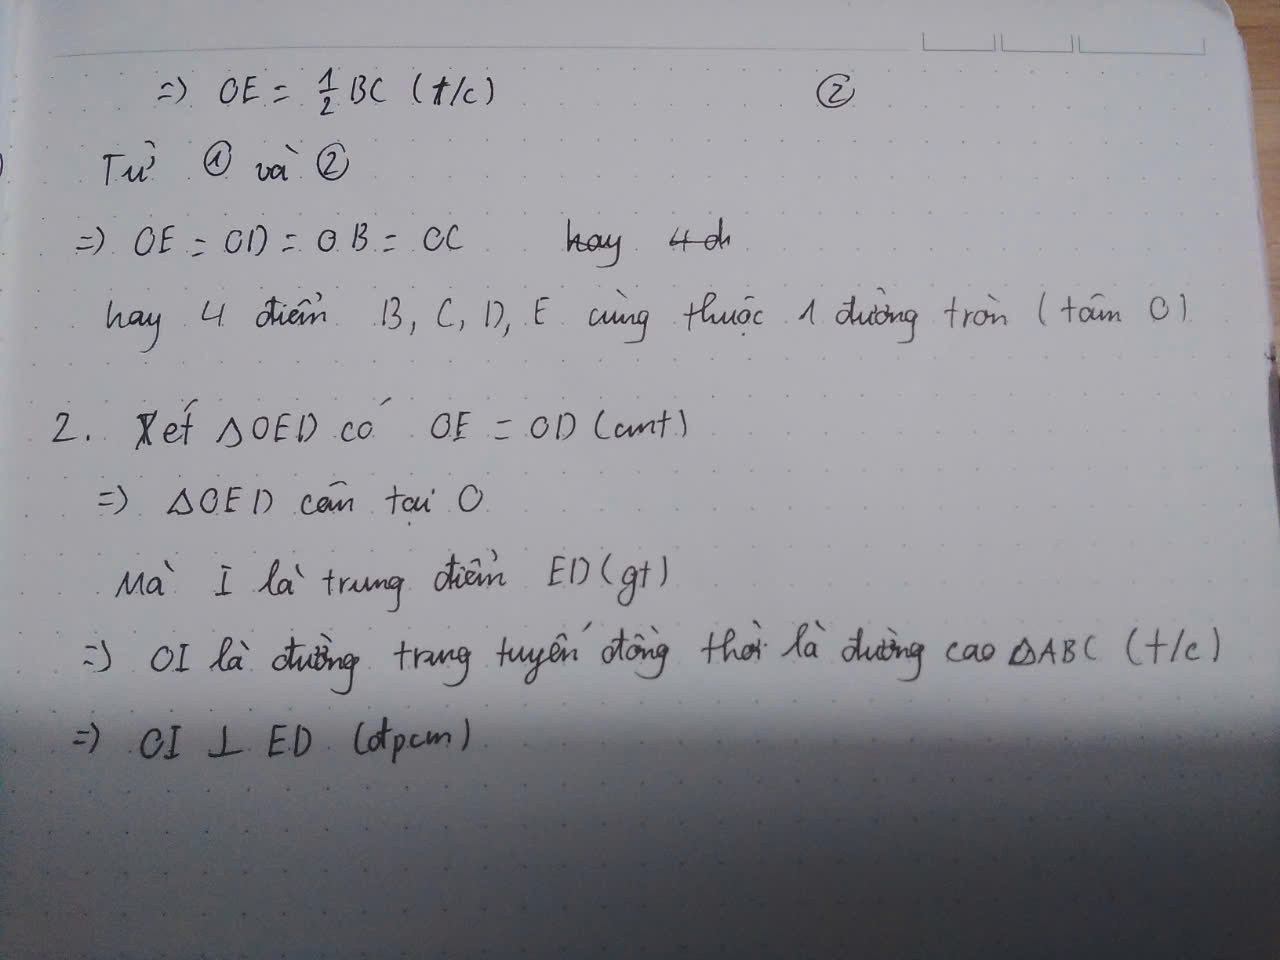 => OE = 1/2 BC (t/c) ②
Từ ① và ②
=> OE = OD = OB = OC hay 4 đ
hay 4 điểm B, C, D, E cùng thuộc 1 đường tròn (tâm O)
2. Xét △OED có OE = OD (cmt)
=> △OED cân tại O
Mà I là trung điểm ED (gt)
=> OI là đường trung tuyến đồng thời là đường cao △ABC (t/c)
=> OI ⊥ ED (đpcm)